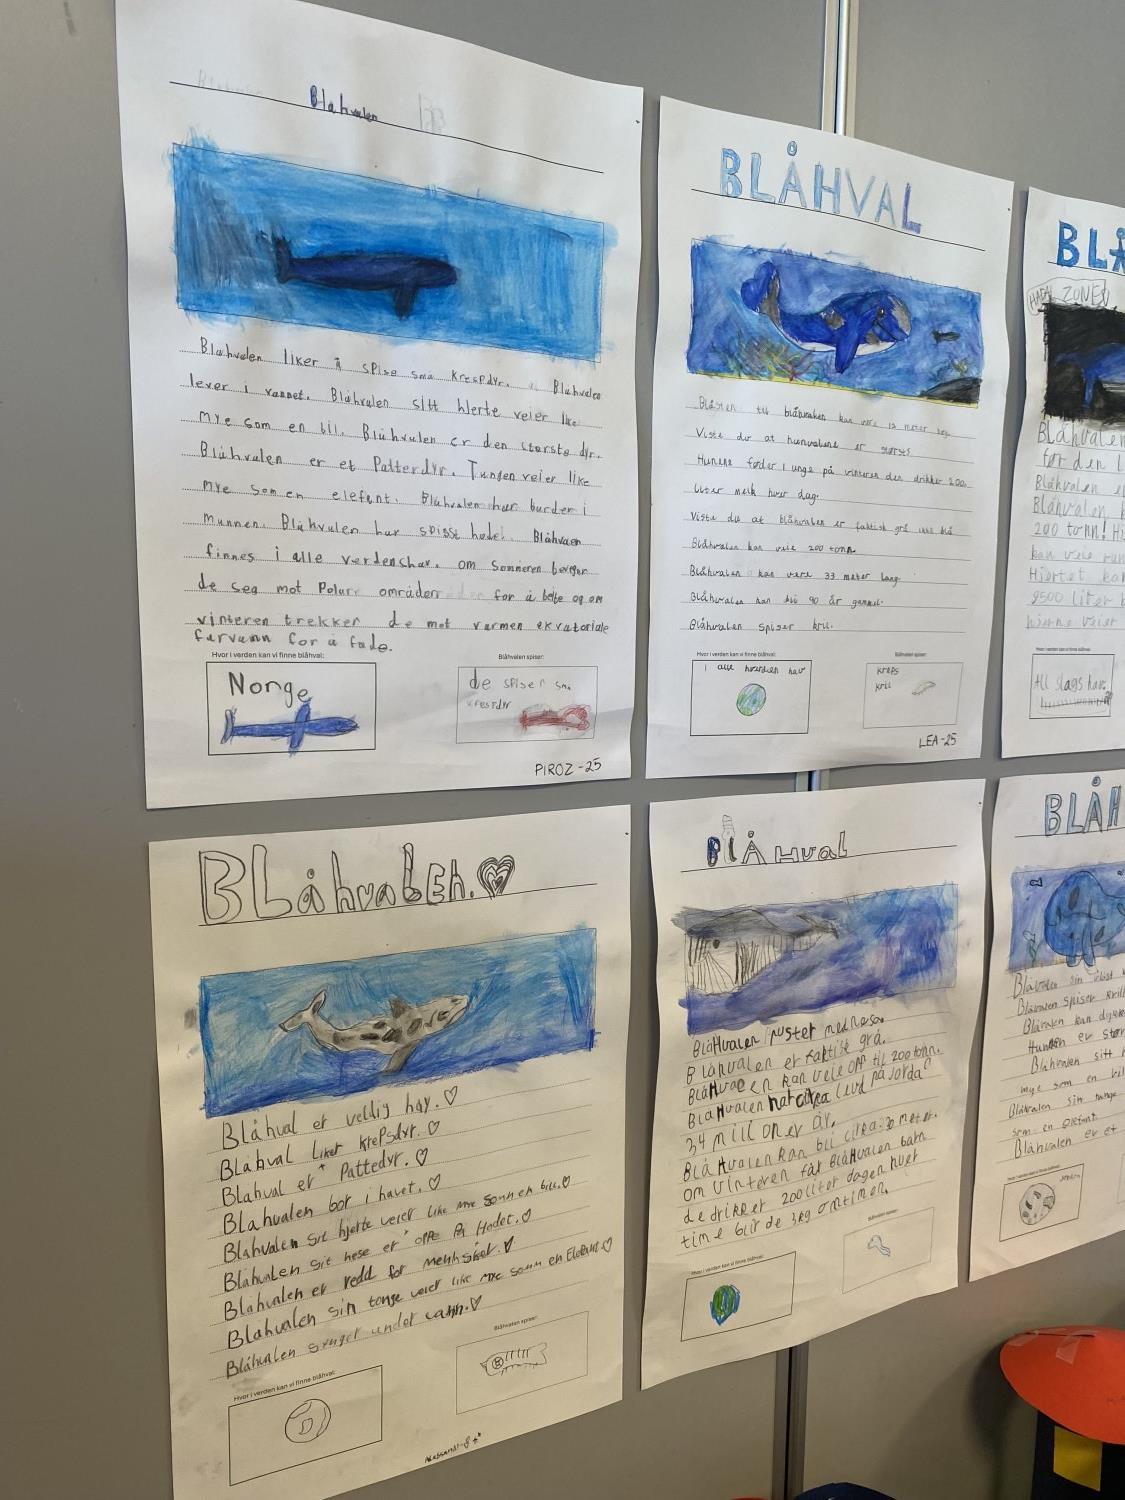 Blåhvalen
Blåhvalen liker å spise små krespdyr. Blåhvalen
lever i vannet. Blåhvalen sitt hjerte veier like
mye som en bil. Blåhvalen er den største dyr.
Blåhvalen er et Patterdyr. Tungen veier like
mye som en elefant. Blåhvalen har burder i
munnen. Blåhvalen har spisst hode. Blåhvaen
finnes i alle verdenshav. om Sommeren beveger
de seg mot Polare områder for å beite og om
vinteren trekker de mot varmen ekvatoriale
farvann for å føde.
Hvor i verden kan vi finne blåhval:
Norge
Blåhvalen spiser:
de spiser små
krestdyr
PIROZ -25
BLÅHVAL
Blåsten til blåhvalen kan være 12 meter høy.
Viste du at hunvalene er størst?
Hunene føder 1 unge på vinteren den drikker 200.
liter melk hver dag.
Viste du at blåhvalen er faktisk grå ikke blå
Blåhvalen kan veie 200 tonn.
Blåhvalen kan være 33 meter lang.
Blåhvalen kan bli 90 år gammel.
Blåhvalen spiser kril.
Hvor i verden kan vi finne blåhval:
i alle hverdien hav
Blåhvalen spiser:
kreps
kril
LEA-25
BLÅ
HADAL ZONE
Blåhvalen
før den l
Blåhvalen e
Blåhvalen k
200 tonn! Hj
kan veie run
Hjertet kan
9500 liter
hjerne veier
Hvor i verden kan vi finne blåhval:
All slags hav.
BLåhvalEn.
Blåhval er veldig høy.
Blåhval liker krepsdyr.
Blåhval er Pattedyr.
Blåhvalen bor i havet.
Blåhvalen sit hjerte veier like mye somm en bill.
Blåhvalen sit nese er oppe på Hodet.
Blåhvalen er redd for mennsket.
Blåhvalen sin tonge veier like mye somm en Elefant
Blåhvalen synger under vann.
Hvor i verden kan vi finne blåhval:
Blåhvalen spiser:
BlÅHval
BlåHvalen puster med nesa.
Blåhvalen er faktisk grå.
BlåHvalen kan veie opp til 200 tonn.
BlåHvalen har cirka levd på jorda i
34 millioner år.
BlåHvalen kan bli cirka: 30 meter.
om vinteren får BlåHvalen barn
de drikker 200 liter dagen hver
time blir de 3kg omtimen.
Blåhvalen spiser:
BLÅH
Blåvalen spiser krill
Blåvalen kan
Hunnen er stør
Blåhvalen sitt h
mye som en bil
Blåhvalen sin tunge
som en elefant
Blåhvalen er et
Hvor i verden kan vi finne blåhval: